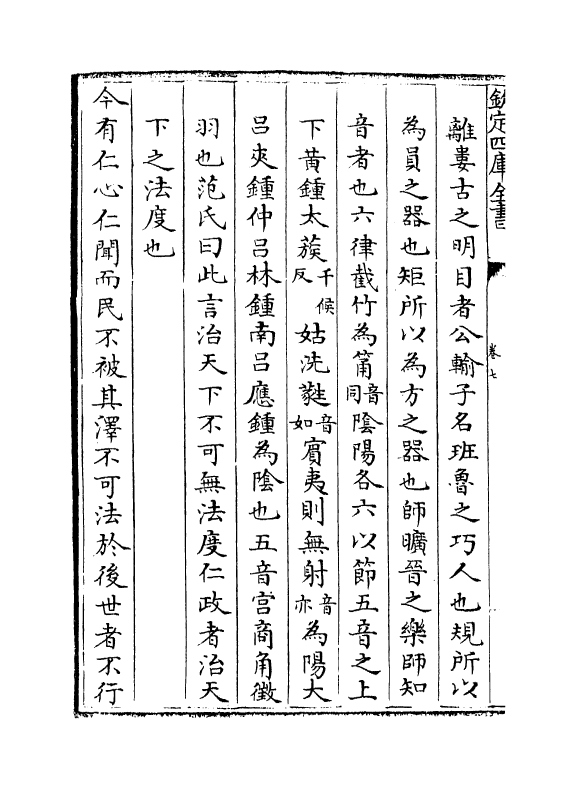 欽定四庫全書
卷七
離婁古之明目者公輸子名班魯之巧人也規所以
為員之器也矩所以為方之器也師曠晉之樂師知
音者也六律截竹為筩音同陰陽各六以節五音之上
下黃鍾太蔟千候反姑洗蕤音如賔夷則無射音亦為陽大
呂夾鍾仲呂林鍾南呂應鍾為陰也五音宫商角徵
羽也范氏曰此言治天下不可無法度仁政者治天
下之法度也
今有仁心仁聞而民不被其澤不可法於後世者不行